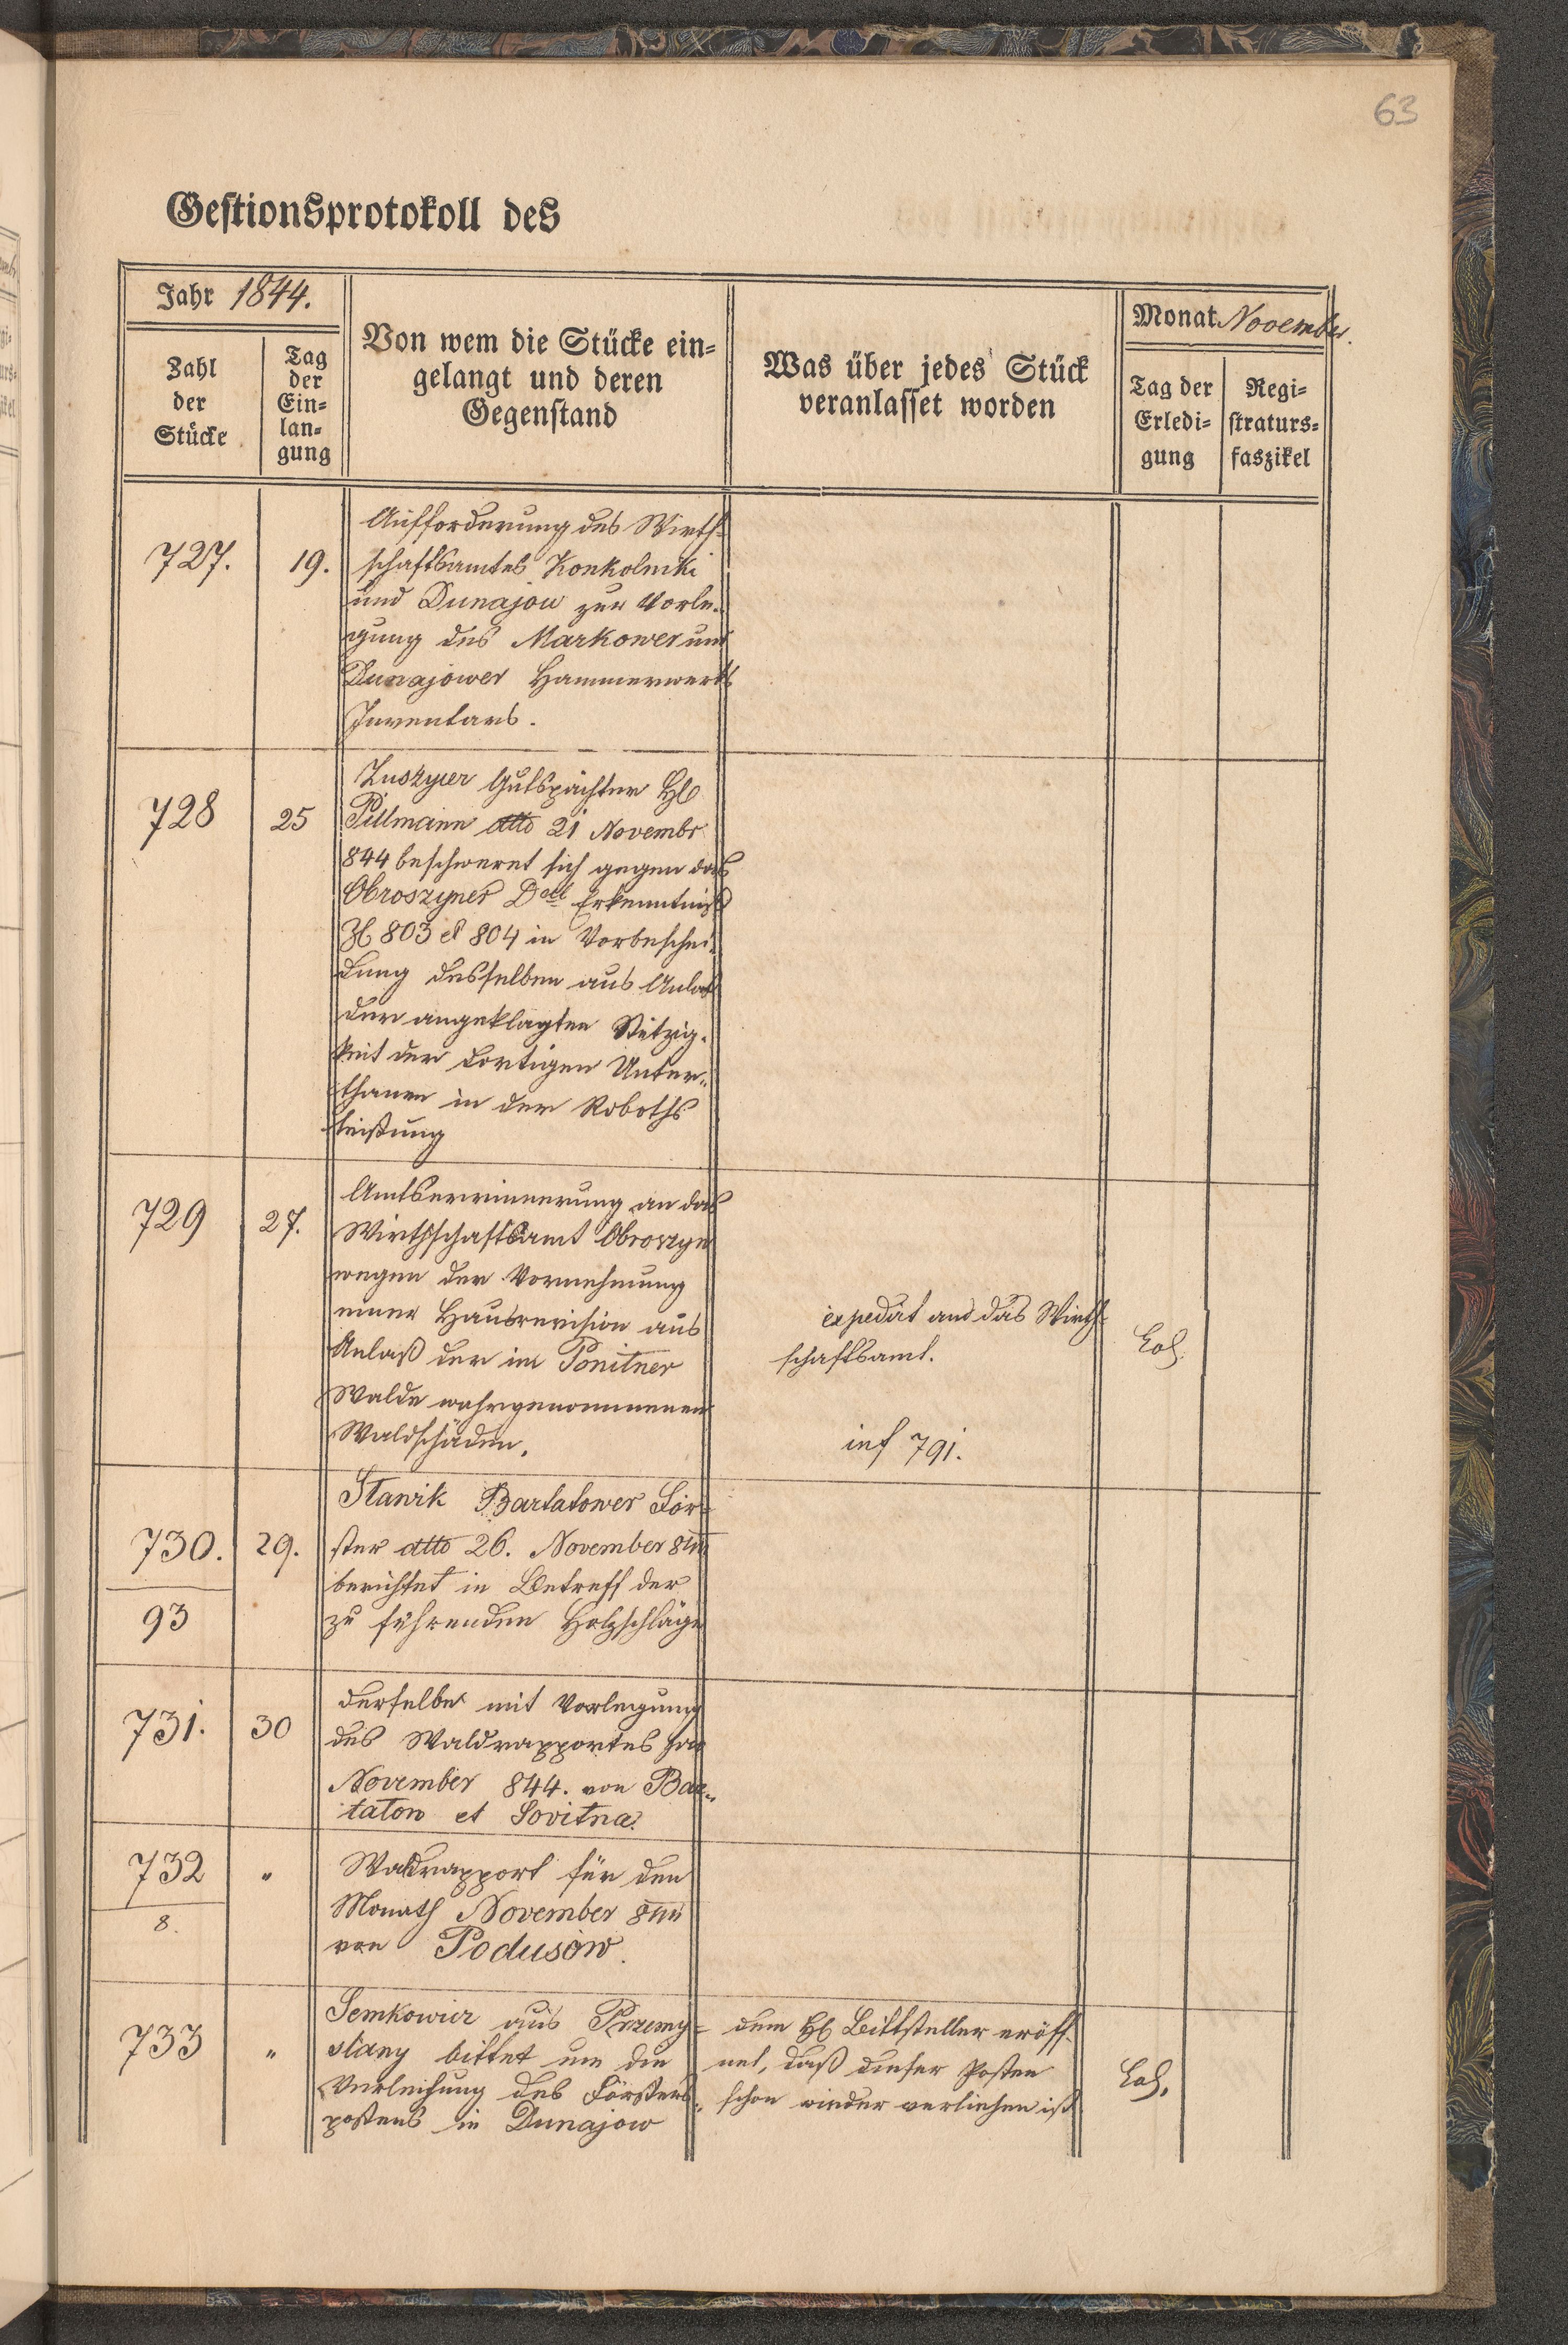 63
Gestionsprotokoll des
Jahr 1844.
Zahl
der
Stücke
Tag
der
Ein=
lan=
gung
Von wem die Stücke ein=
gelangt und deren
Gegenstand
Was über jedes Stück
veranlasset worden
Monat November.
Tag der
Erledi=
gung
Regi=
straturs=
faszikel
727.
19.
Aufforderung des Wirth=
schaftsamtes Konkolniki
und Dunajow zur Vorle=
gung des Markower und
Dunajower Hammerwerks
Inventars.
728
25
Gutspächter H
Pillmann dtto 21 Novembr
844 beschwert sich gegen das
Obroszyner Erkenntniß
Zl 803 et 804 in Vorbeschei=
dung desselben aus Anlaß
der angeklagten
keit der dortigen Unter=
thanen in der Roboths
leistung
729
27.
Amtserinnerung an das
Wirthschaftsamt Obroszyn
wegen der Vornehmung
einer Hausrevision aus
Anlaß der im Ponitner
Walde wahrgenommenen
Waldschäden.
expedirt an das Wirth=
schaftsamt.
inf 791.
eod.
730.
93
29.
Stawik Bartatower För=
ster dtto 26. November 844
berichtet in Betreff der
zu führenden Holzschläge
731.
30
derselbe mit Vorlegung
des Waldrapportes pro
November 844. von Bar=
tatow et Lovitna.
732
8.
"
Waldrapport für den
Monath November 844
von Podusów.
733
"
Semkowicz aus Przemy=
slany bittet um die
Verleihung des Försters=
postens in Dunajow
dem H Bittsteller eröff=
net, daß dieser Posten
schon wieder verliehen ist
eod.